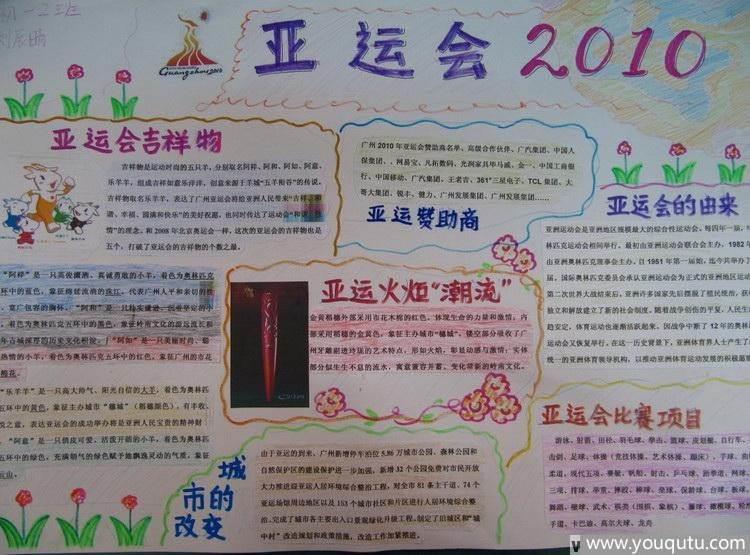 初一2班
刘辰晴
Guangzhou 2010
亚运会 2010
亚运会吉祥物
吉祥物是运动时尚的五只羊,分别取名阿祥、阿和、阿如、阿意、
乐羊羊,组成吉祥如意乐洋洋,创意来源于羊城“五羊衔谷”的传说,
吉祥物取名乐羊羊,表达了广州亚运会将给亚洲人民带来“吉祥、和
谐、幸福、圆满和快乐”的美好祝愿,也同时传达了运动会“和谐、激
情”的理念。和2008年北京奥运会一样,这次的亚运会的吉祥物也是
五个,打破了亚运会的吉祥物的个数之最。
“阿祥”是一只高傲潇洒、真诚勇敢的小羊,着色为奥林匹克
环中的蓝色,象征绵延流淌的珠江,代表广州人平和亲切的性
、宽广包容的胸怀。“阿和”是一只稳实建壮、沉着坚定的小
,着色为奥林匹克五环中的墨色,象征岭南文化的源远流长和
年古城深厚的历史文化积淀。“阿如”是一只美丽时尚、聪
热情的小羊,着色为奥林匹克五环中的红色,象征广州的市花
棉花。
“乐羊羊”是一只高大帅气、阳光自信的大羊,着色为奥林匹
五环中的黄色,象征主办城市“穗城”(稻穗颜色),有丰收、
悦之意,表达亚运会的成功举办将是亚洲人民宝贵的精神财
。“阿意”是一只俏皮可爱、活泼开朗的小羊,着色为奥林匹
五环中的绿色,充满朝气的绿色赋予她飘逸灵动的气质,象征
云山。
广州2010年亚运会赞助商名单、高级合作伙伴、广汽集团、中国人
保集团、、网易宝、凡拓数码、光润家具毕马威、金一、中国工商银
行、中国移动、广汽集团、王老吉、361°三星电子、TCL集团、大
哥大集团、锐丰、健力、广州发展集团、广州发展集团……
亚运赞助商
亚运会的由来
亚洲运动会是亚洲地区规模最大的综合性运动会,每四年一届,与
林匹克运动会相间举行。最初由亚洲运动会联合会主办,1982年
由亚洲奥林匹克理事会主办。自1951年第一届始,迄今共举办了
届。国际奥林匹克委员会承认亚洲运动会为正式的亚洲地区运
第二次世界大战结束后,亚洲许多国家先后摆脱了殖民统治,获
独立和解放建立了新的社会制度。随着战争创伤的平复,人民生
趋安定,体育运动也逐渐活跃起来。因战争中断了12年的奥林
动会又恢复举行,在这一历史背景下,亚洲体育界人士产生了
统一的亚洲体育领导机构,以推动亚洲体育运动发展的积极愿
亚运火炬“潮流”
金黄稻穗外部采用市花木棉的红色,体现生命的力量和激情;内
部采用稻穗的金黄色,象征主办城市“穗城”。镂空部分吸收了广
州牙雕剔透玲珑的艺术特点,形如火焰,彰显动感与激情;实体
部分似生生不息的流水,寓意兼容并蓄、变化带新的岭南文化。
城市的改变
由于亚运的到来,广州新增停车泊位5.86万城市公园、森林公园和
自然保护区的建设保护进一步加强。新增32个公园免费对市民开放
大力推进迎亚运人居环境综合整治工程,对全市81条主干道、74个
亚运场馆周边地区以及153个城市社区和片区进行人居环境综合整
治。完成了城市各主要出入口景观绿化升级工程,制定了旧城区和“城
中村”改造规划和政策措施,改造工作加紧推进。
亚运会比赛项目
游泳、射箭、田径、羽毛球、拳击、篮球、皮划艇、自行车、
击剑、足球、体操(竞技体操、艺术体操、蹦床)、手球、
柔道、现代五项、赛艇、帆船、射击、乒乓球、跆拳道、网球、
三项、排球、举重、摔跤、棒球、垒球、保龄球、台球、板球、
舞蹈、壁球、武术、棋类(围棋、象棋)、藤球、橄榄球、
手道、卡巴迪、高尔夫球、龙舟
www.youqutu.com